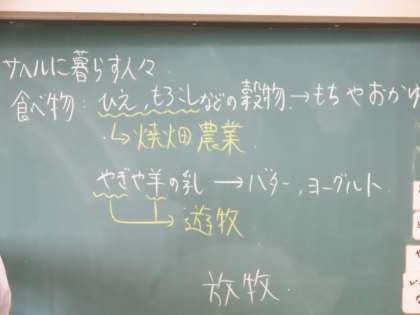 サヘルに暮らす人々.
食べ物:ひえ,もろこしなどの穀物.→もちやおかゆ
↳焼畑農業.
やぎや羊の乳→バター,ヨーグルト.
→遊牧
放牧.